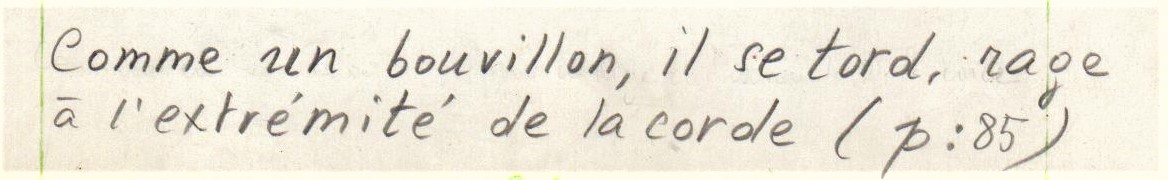 Comme un bouvillon, il se tord, rage
à l'extrémité de la corde (p:85)